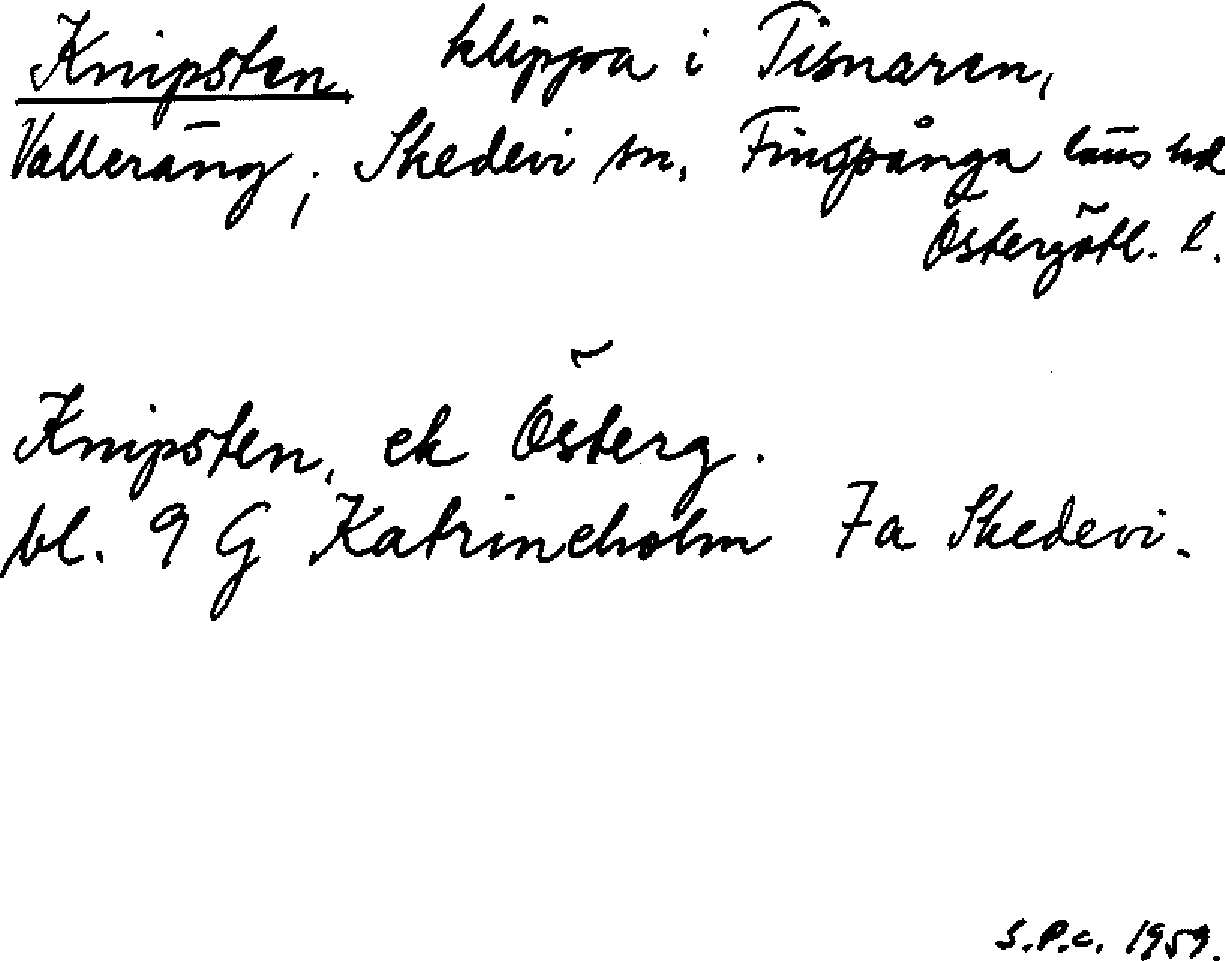 Knipsten, klippa i Tisnaren,
Valleräng, Skedevi sn, Finspånga läns hd
Östergötl. l.
Knipsten, ek Österg.
bl. 9 G Katrineholm 7a Skedevi.
S.P.C. 1959.